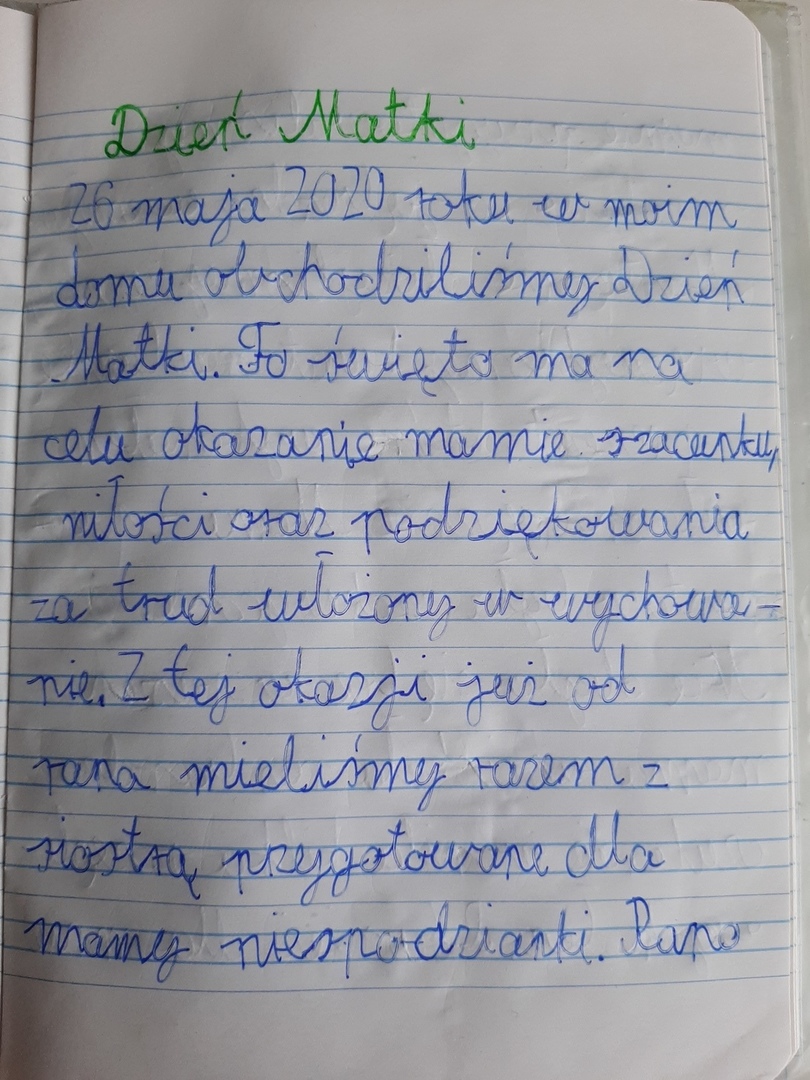 Dzień Matki
26 maja 2020 roku w moim
domu obchodziliśmy Dzień
Matki. To święto ma na
celu okazanie mamie szacunku,
miłości oraz podziękowania
za trud włożony w wychowa-
nie. Z tej okazji już od
rana mieliśmy razem z
siostrą przygotowane dla
mamy niespodzianki. Rano